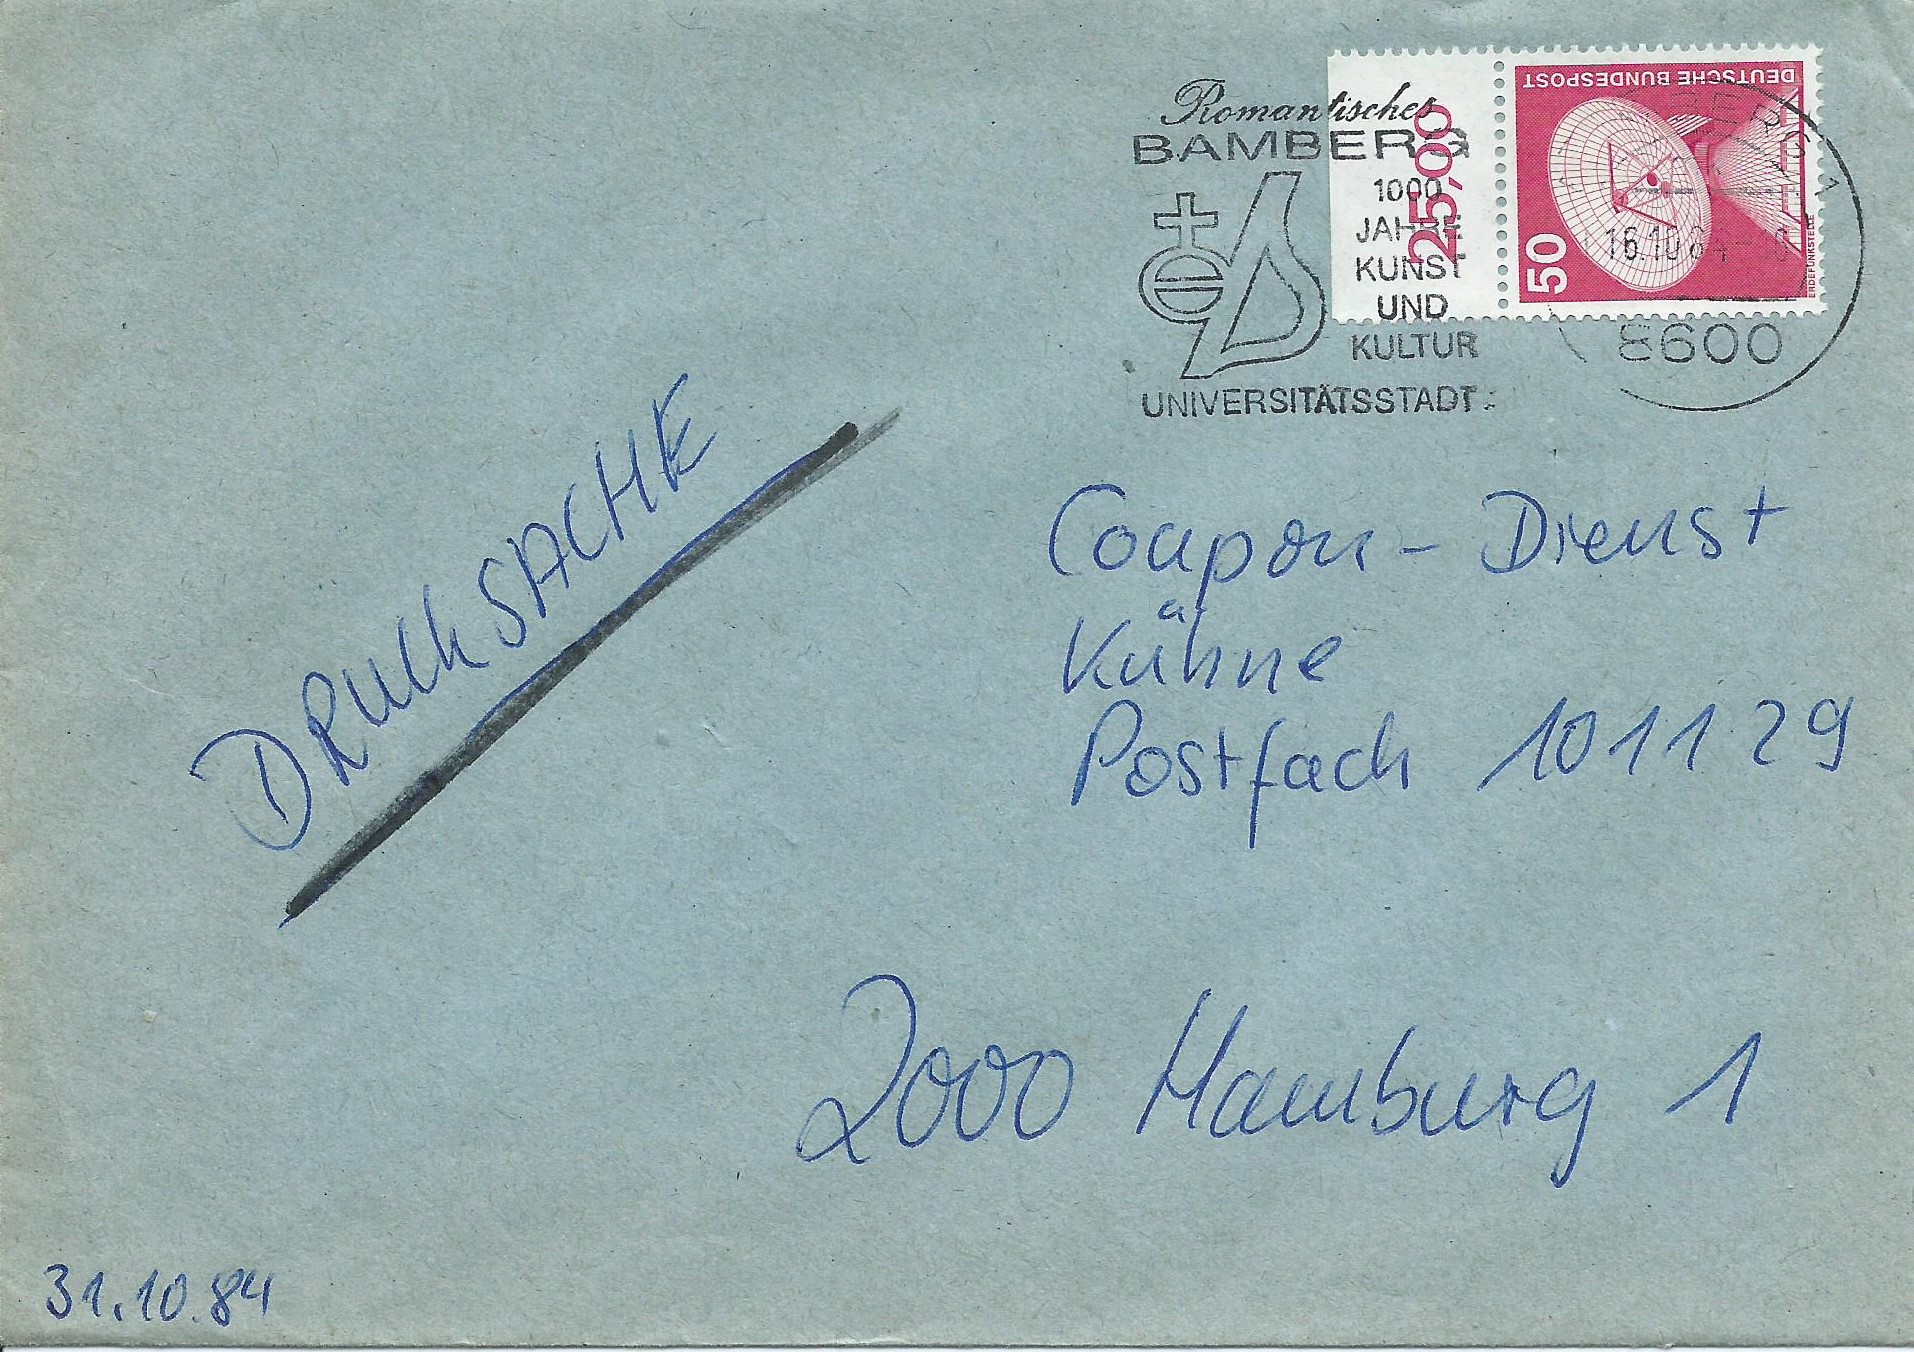 Romantisches
BAMBERG
1000
JAHRE
KUNST
UND
KULTUR
UNIVERSITÄTSSTADT
25,00
DEUTSCHE BUNDESPOST
50
ERDEFUNKSTELLE
16.10.84
8600
DRUCKSACHE
Coupon-Dienst
Kühne
Postfach 101129
2000 Hamburg 1
31.10.84